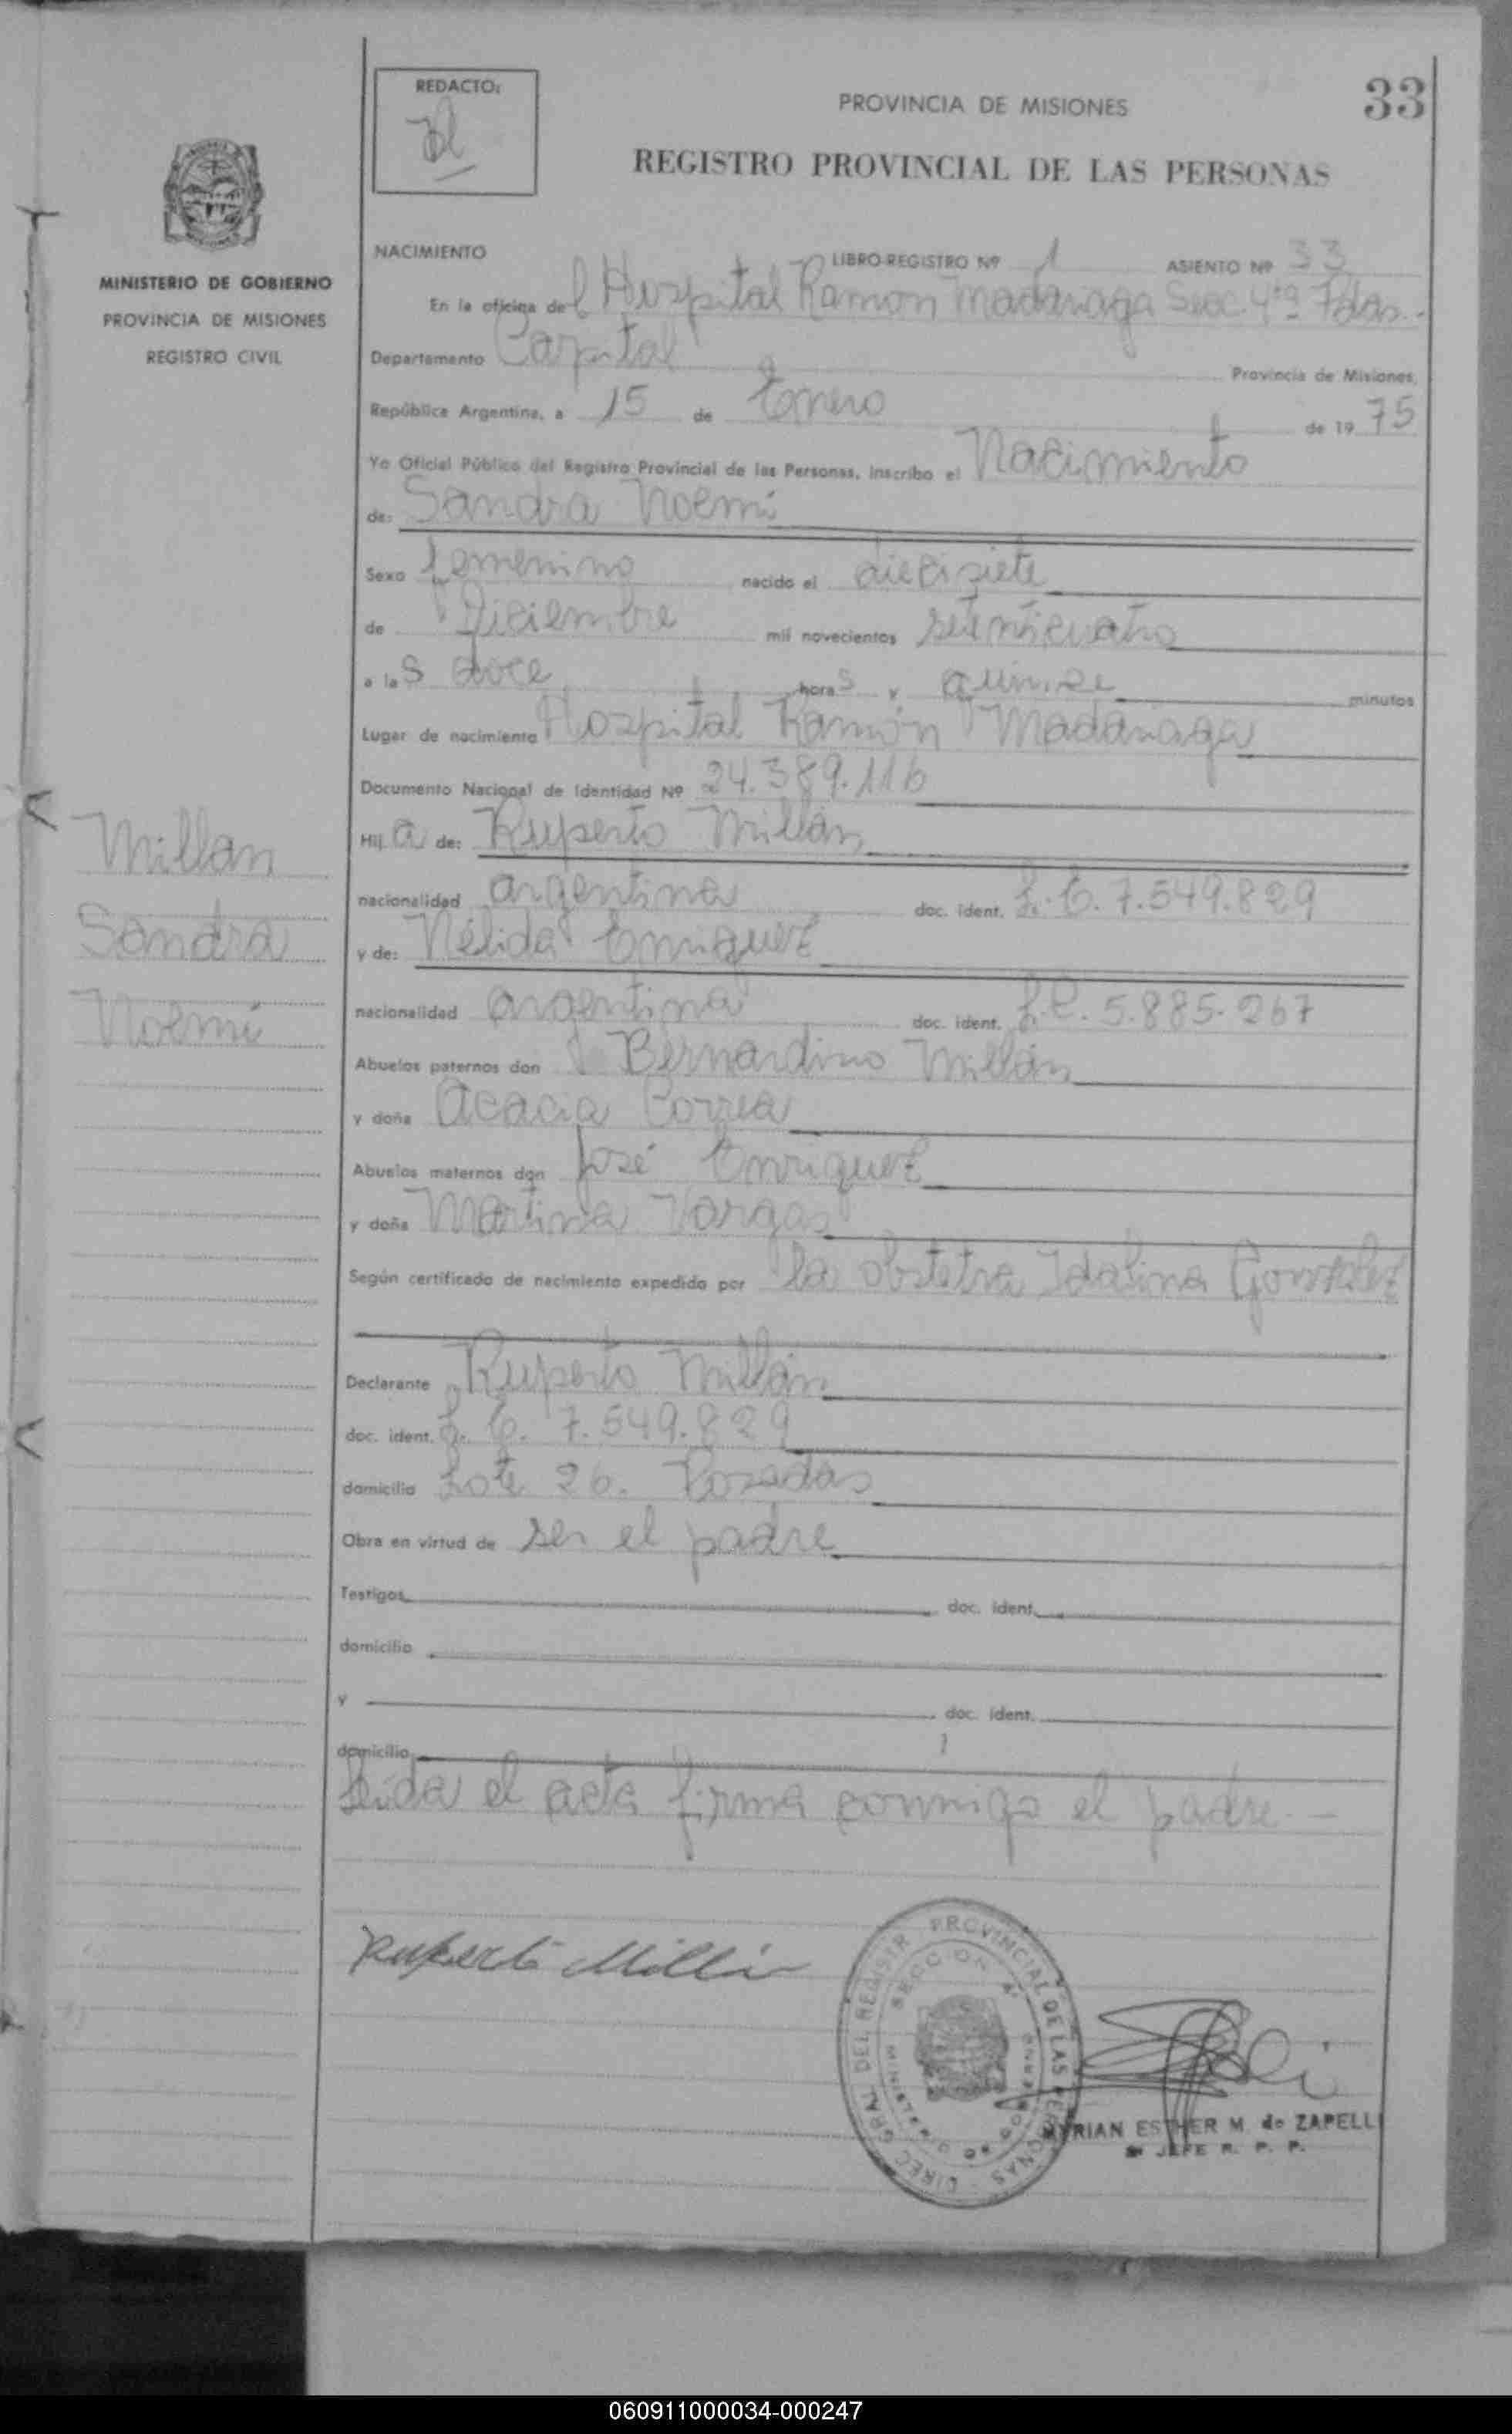 REDACTO:
PROVINCIA DE MISIONES
33
REGISTRO PROVINCIAL DE LAS PERSONAS
MINISTERIO DE GOBIERNO
PROVINCIA DE MISIONES
REGISTRO CIVIL
NACIMIENTO LIBRO REGISTRO Nº 1 ASIENTO Nº 33
En la oficina del Hospital Ramon Madariaga Secc. 4ta Pdas.
Departamento Capital Provincia de Misiones,
República Argentina, a 15 de Enero de 1975
Yo Oficial Público del Registro Provincial de las Personas, inscribo el Nacimiento
de: Sandra Noemi
Sexo femenino nacido el diecisiete
de Diciembre mil novecientos setenticuatro
a las doce horas y quince minutos
Lugar de nacimiento Hospital Ramón Madariaga
Documento Nacional de Identidad Nº 24.389.116
Hija de: Ruperto Millán
nacionalidad argentina doc. ident. L.E. 7.549.829
y de: Nélida Enriquez
nacionalidad argentina doc. ident. L.C. 5.885.267
Abuelos paternos don Bernardino Millán
y doña Acacia Correa
Abuelos maternos don José Enriquez
y doña Martina Vargas
Según certificado de nacimiento expedido por la obstetra Idalina Gonzalez
Declarante Ruperto Millán
doc. ident. L.E. 7.549.829
domicilio Lote 26. Posadas
Obra en virtud de ser el padre
Testigos doc. ident.
domicilio
y doc. ident.
domicilio
Leida el acta firma conmigo el padre. —
Millan
Sandra
Noemí
Ruperto Millán
DIREC. GRAL DEL REGISTR. PROVINCIAL DE LAS PERSONAS
SECCION 4ª
MYRIAN ESTHER M. de ZAPELLI
JEFE R. P. P.
060911000034-000247